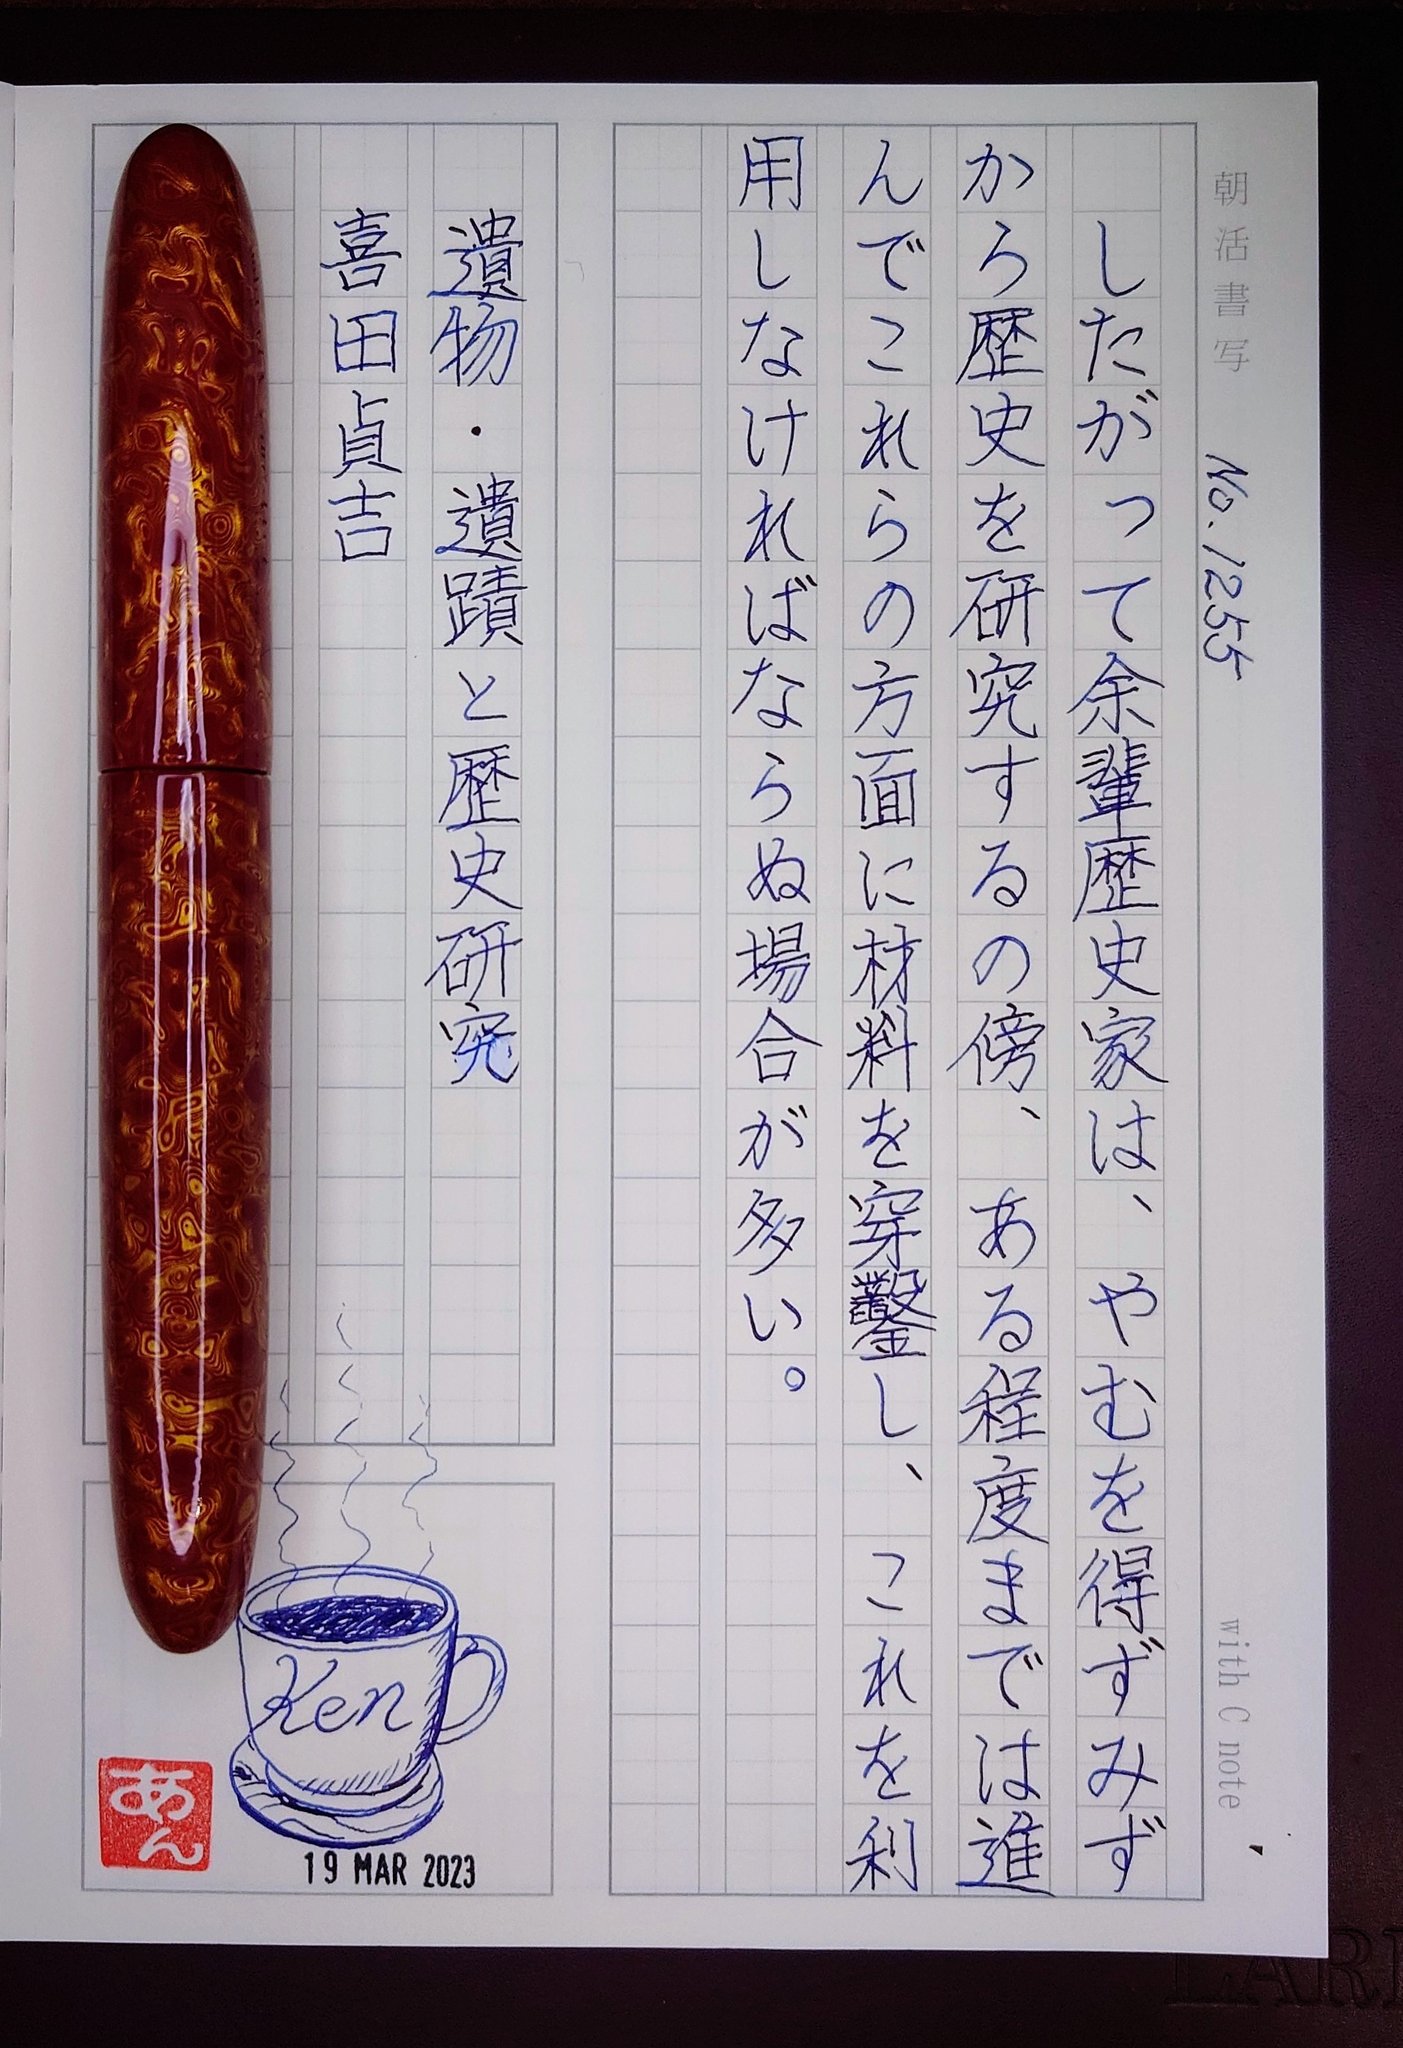 朝活書写 No.1255 with C note
したがって余輩歴史家は、やむを得ずみず
から歴史を研究するの傍、ある程度までは進
んでこれらの方面に材料を穿鑿し、これを利
用しなければならぬ場合が多い。
遺物・遺蹟と歴史研究
喜田貞吉
Ken
あん
19 MAR 2023